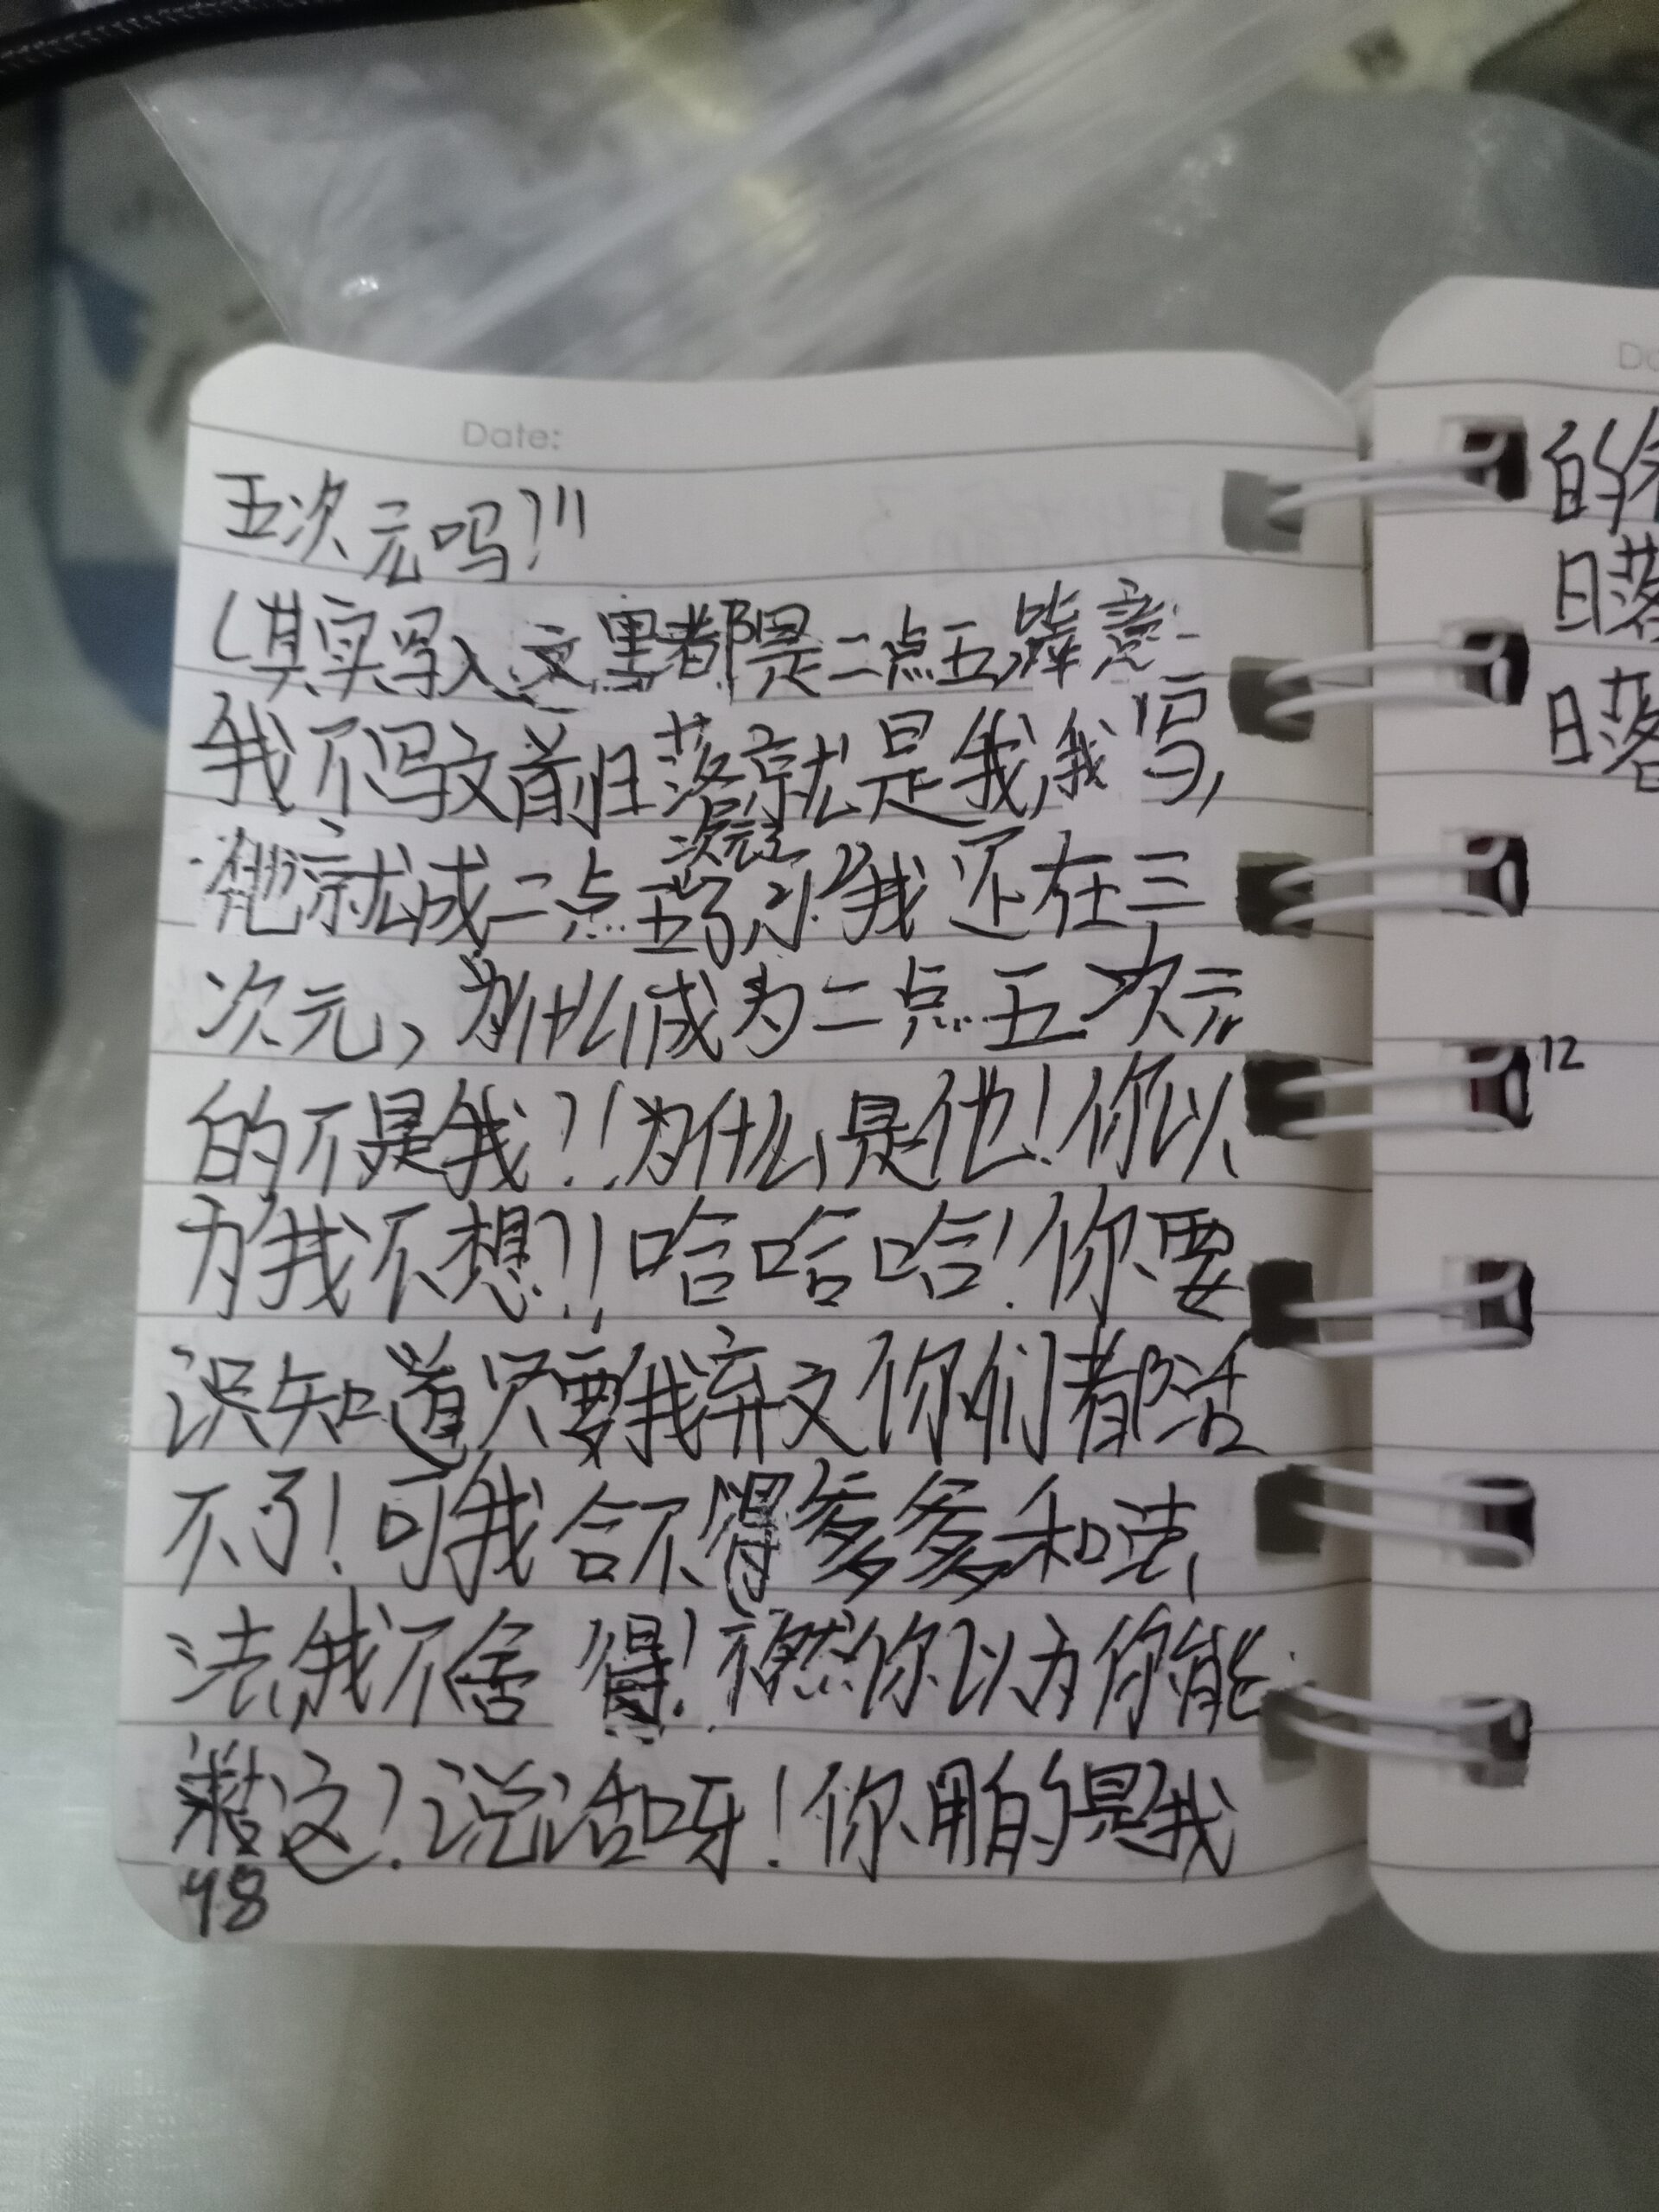 Date:
五次元吗?!!
(其实写入文里都是二点五,毕竟
我不写文前日落就是我,我一写,
他就成二点五次元了,小"我还在三
次元,为什么成为二点五次元
的不是我?!为什么是他!你以
为我不想?!哈哈哈!你要
识知道只要我弃文你们都活
不了!可我舍不得多多和法
法,我不舍得!不然你以为你能
在这?说话呀!你用的是我
48
的
日落
日落
12